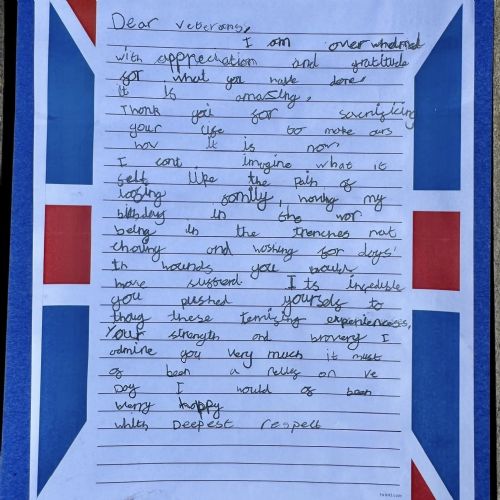 Dear veterans,
I am overwhelmed
with apprechation and gratitude
for what you have done.
it is amazing.
Thonk you for sacrificing
your life to make ours
how it is now
I cont imagine what it
felt like the pain of
loosing family, having my
birthday in the wor
being in the trenches not
chaving and woshing for days
th wounds you would
have sufferd Its incredible
you pushed yourself to
thoug these terrifing experiencess,
Your strength and bravery I
admire you very much it must
of been a on ve
Day I would of been
happy
whith Deepest respect
twinkl.com